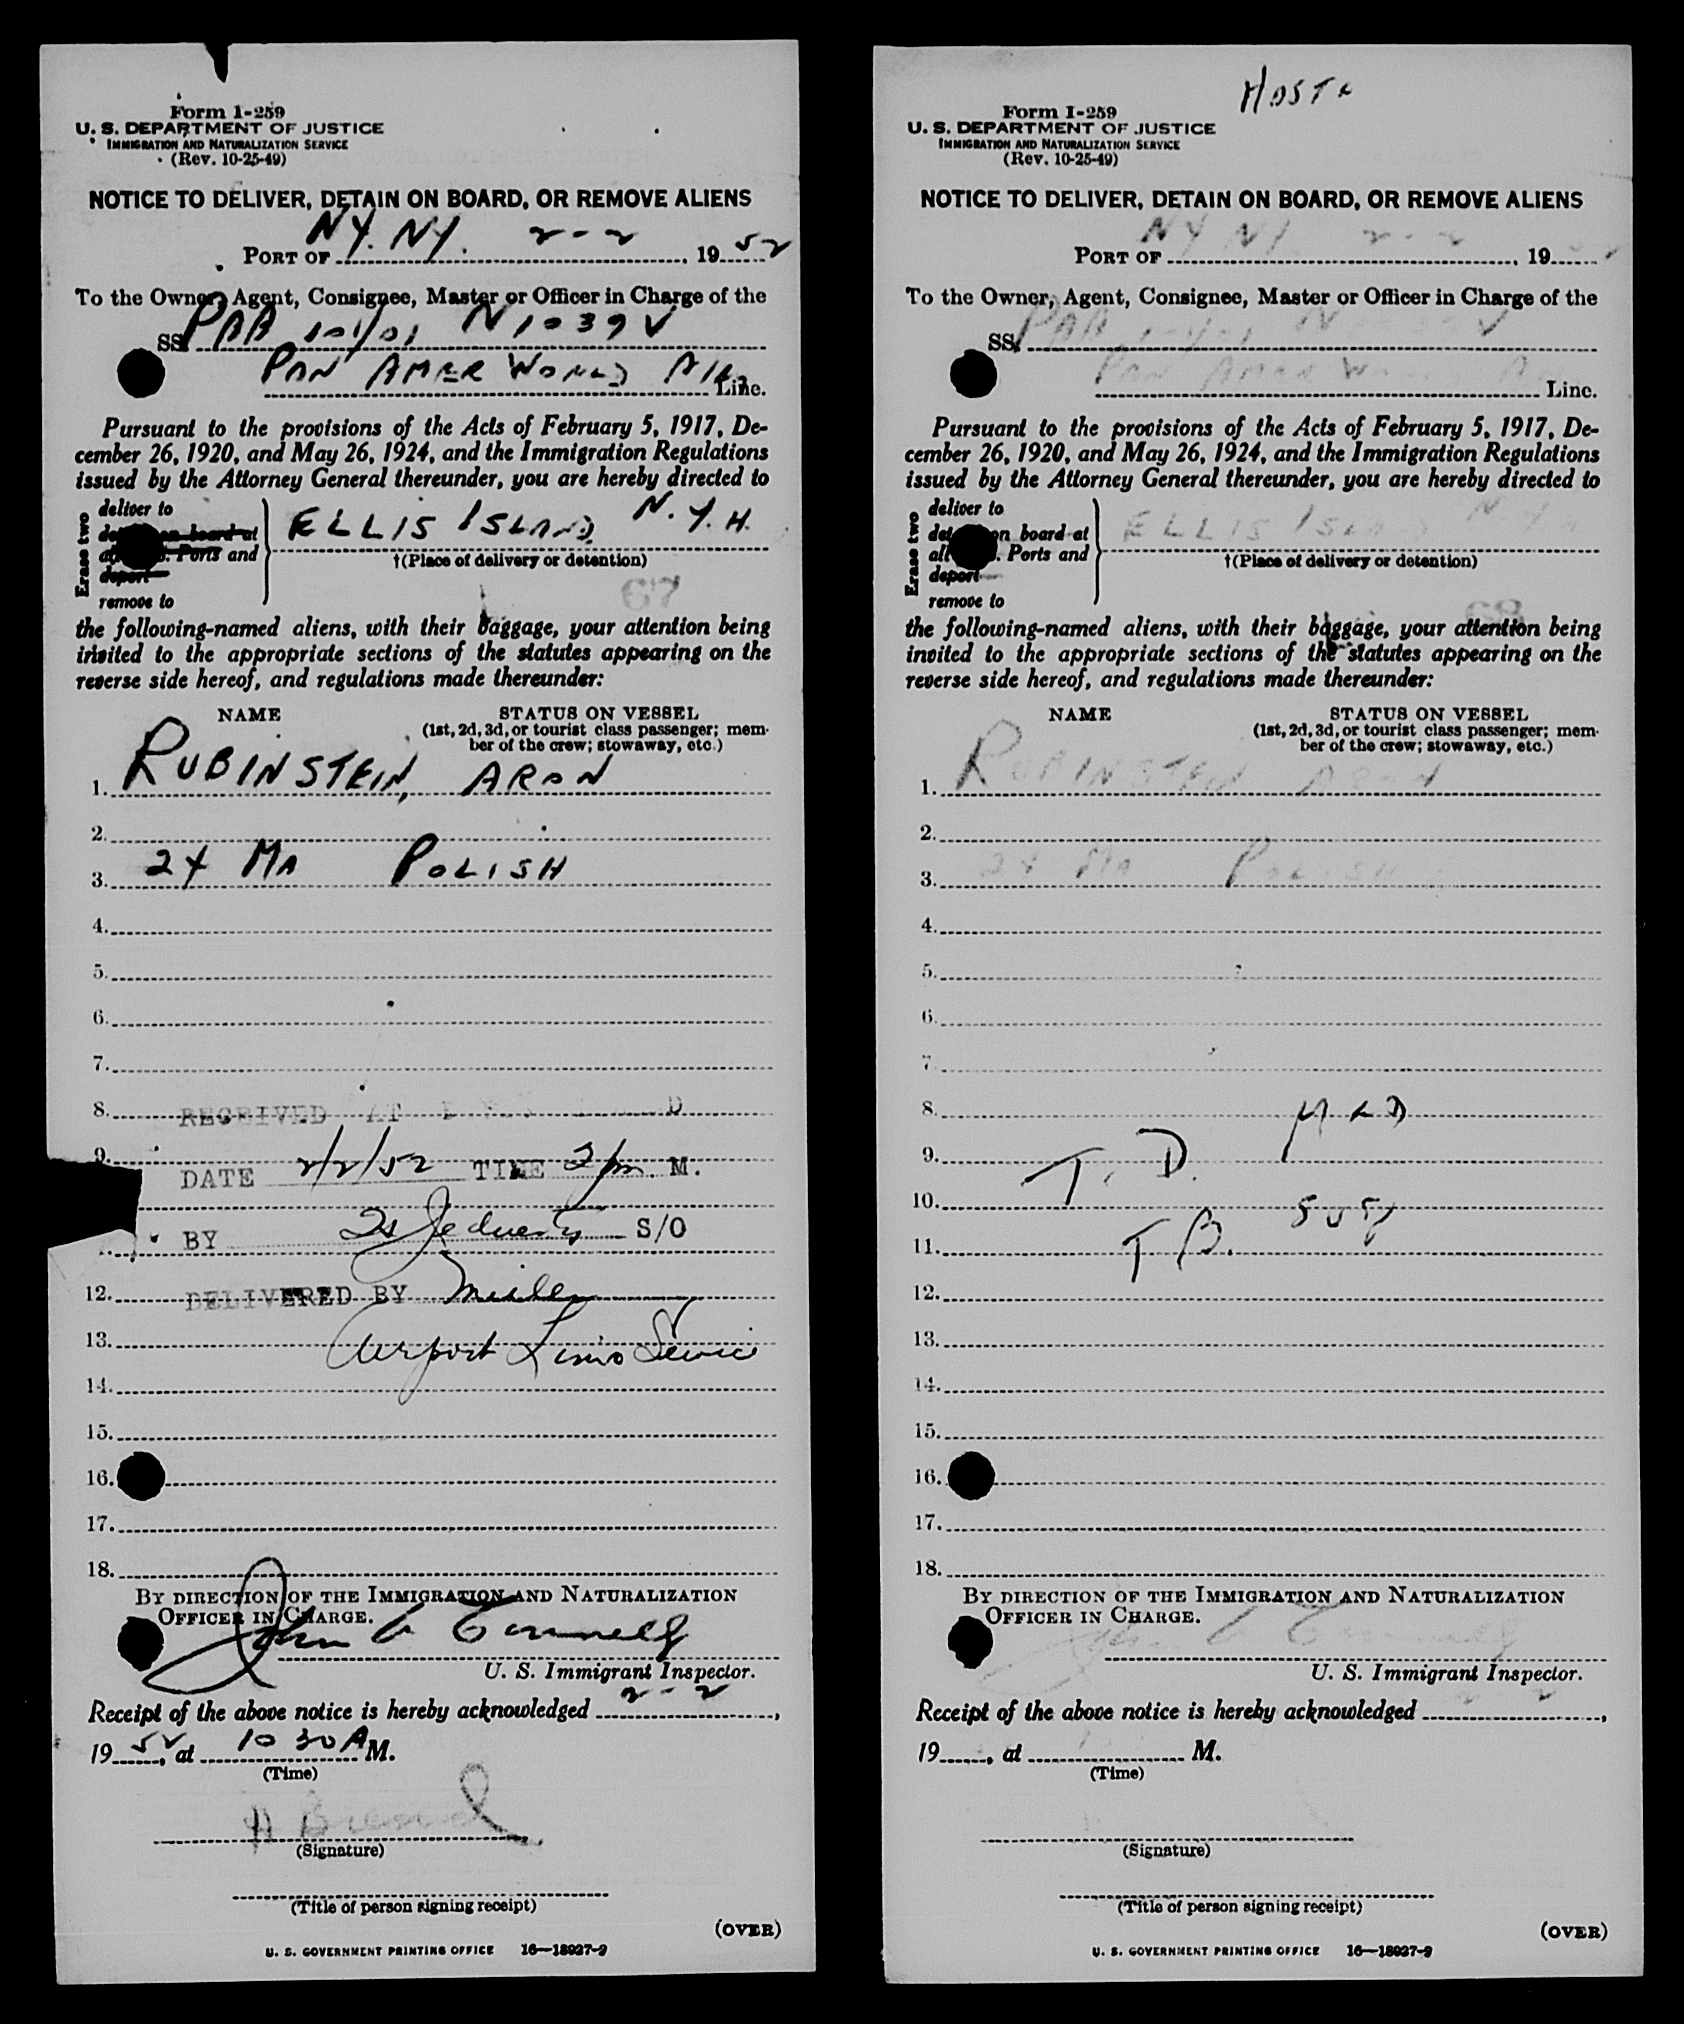 Form I-259
U. S. DEPARTMENT OF JUSTICE
IMMIGRATION AND NATURALIZATION SERVICE
(Rev. 10-25-49)
NOTICE TO DELIVER, DETAIN ON BOARD, OR REMOVE ALIENS
PORT OF NY. NY. 2-2, 1952
To the Owner, Agent, Consignee, Master or Officer in Charge of the
SS. PAA 101/01 N1039V
PAN AMER WORLD Line.
Pursuant to the provisions of the Acts of February 5, 1917, De-
cember 26, 1920, and May 26, 1924, and the Immigration Regulations
issued by the Attorney General thereunder, you are hereby directed to
Erase two
deliver to
on board at
Ports and
deport
remove to
ELLIS ISLAND N.Y.H.
†(Place of delivery or detention)
67
the following-named aliens, with their baggage, your attention being
invited to the appropriate sections of the statutes appearing on the
reverse side hereof, and regulations made thereunder:
NAME
STATUS ON VESSEL
(1st, 2d, 3d, or tourist class passenger; mem-
ber of the crew; stowaway, etc.)
1. RUBINSTEIN, ARON
2.
3. 24 MA POLISH
4.
5.
6.
7.
8. RECEIVED AT
9.
DATE 2/2/52 TIME 2 pm. M.
BY S/O
12. DELIVERED BY Miller
13. Airport Limo Service
14.
15.
16.
17.
18.
BY DIRECTION OF THE IMMIGRATION AND NATURALIZATION
OFFICER IN CHARGE.
John
U. S. Immigrant Inspector.
Receipt of the above notice is hereby acknowledged 2-2,
1952, at 10 30 A M.
(Time)
(Signature)
(Title of person signing receipt)
(OVER)
U. S. GOVERNMENT PRINTING OFFICE 16—18927-9
Form I-259
U. S. DEPARTMENT OF JUSTICE
IMMIGRATION AND NATURALIZATION SERVICE
(Rev. 10-25-49)
NOTICE TO DELIVER, DETAIN ON BOARD, OR REMOVE ALIENS
PORT OF NY NY 2-2, 1952
To the Owner, Agent, Consignee, Master or Officer in Charge of the
SS. PAA
PAN AMER Line.
Pursuant to the provisions of the Acts of February 5, 1917, De-
cember 26, 1920, and May 26, 1924, and the Immigration Regulations
issued by the Attorney General thereunder, you are hereby directed to
Erase two
deliver to
on board at
all Ports and
deport
remove to
ELLIS ISLAND
†(Place of delivery or detention)
68
the following-named aliens, with their baggage, your attention being
invited to the appropriate sections of the statutes appearing on the
reverse side hereof, and regulations made thereunder:
NAME
STATUS ON VESSEL
(1st, 2d, 3d, or tourist class passenger; mem-
ber of the crew; stowaway, etc.)
1. RUBINSTEIN ARON
2.
3. 24 MA POLISH
4.
5.
6.
7.
8.
9. T. D.
10.
11. T B.
12.
13.
14.
15.
16.
17.
18.
BY DIRECTION OF THE IMMIGRATION AND NATURALIZATION
OFFICER IN CHARGE.
U. S. Immigrant Inspector.
Receipt of the above notice is hereby acknowledged
19, at M.
(Time)
(Signature)
(Title of person signing receipt)
(OVER)
U. S. GOVERNMENT PRINTING OFFICE 16—18927-9